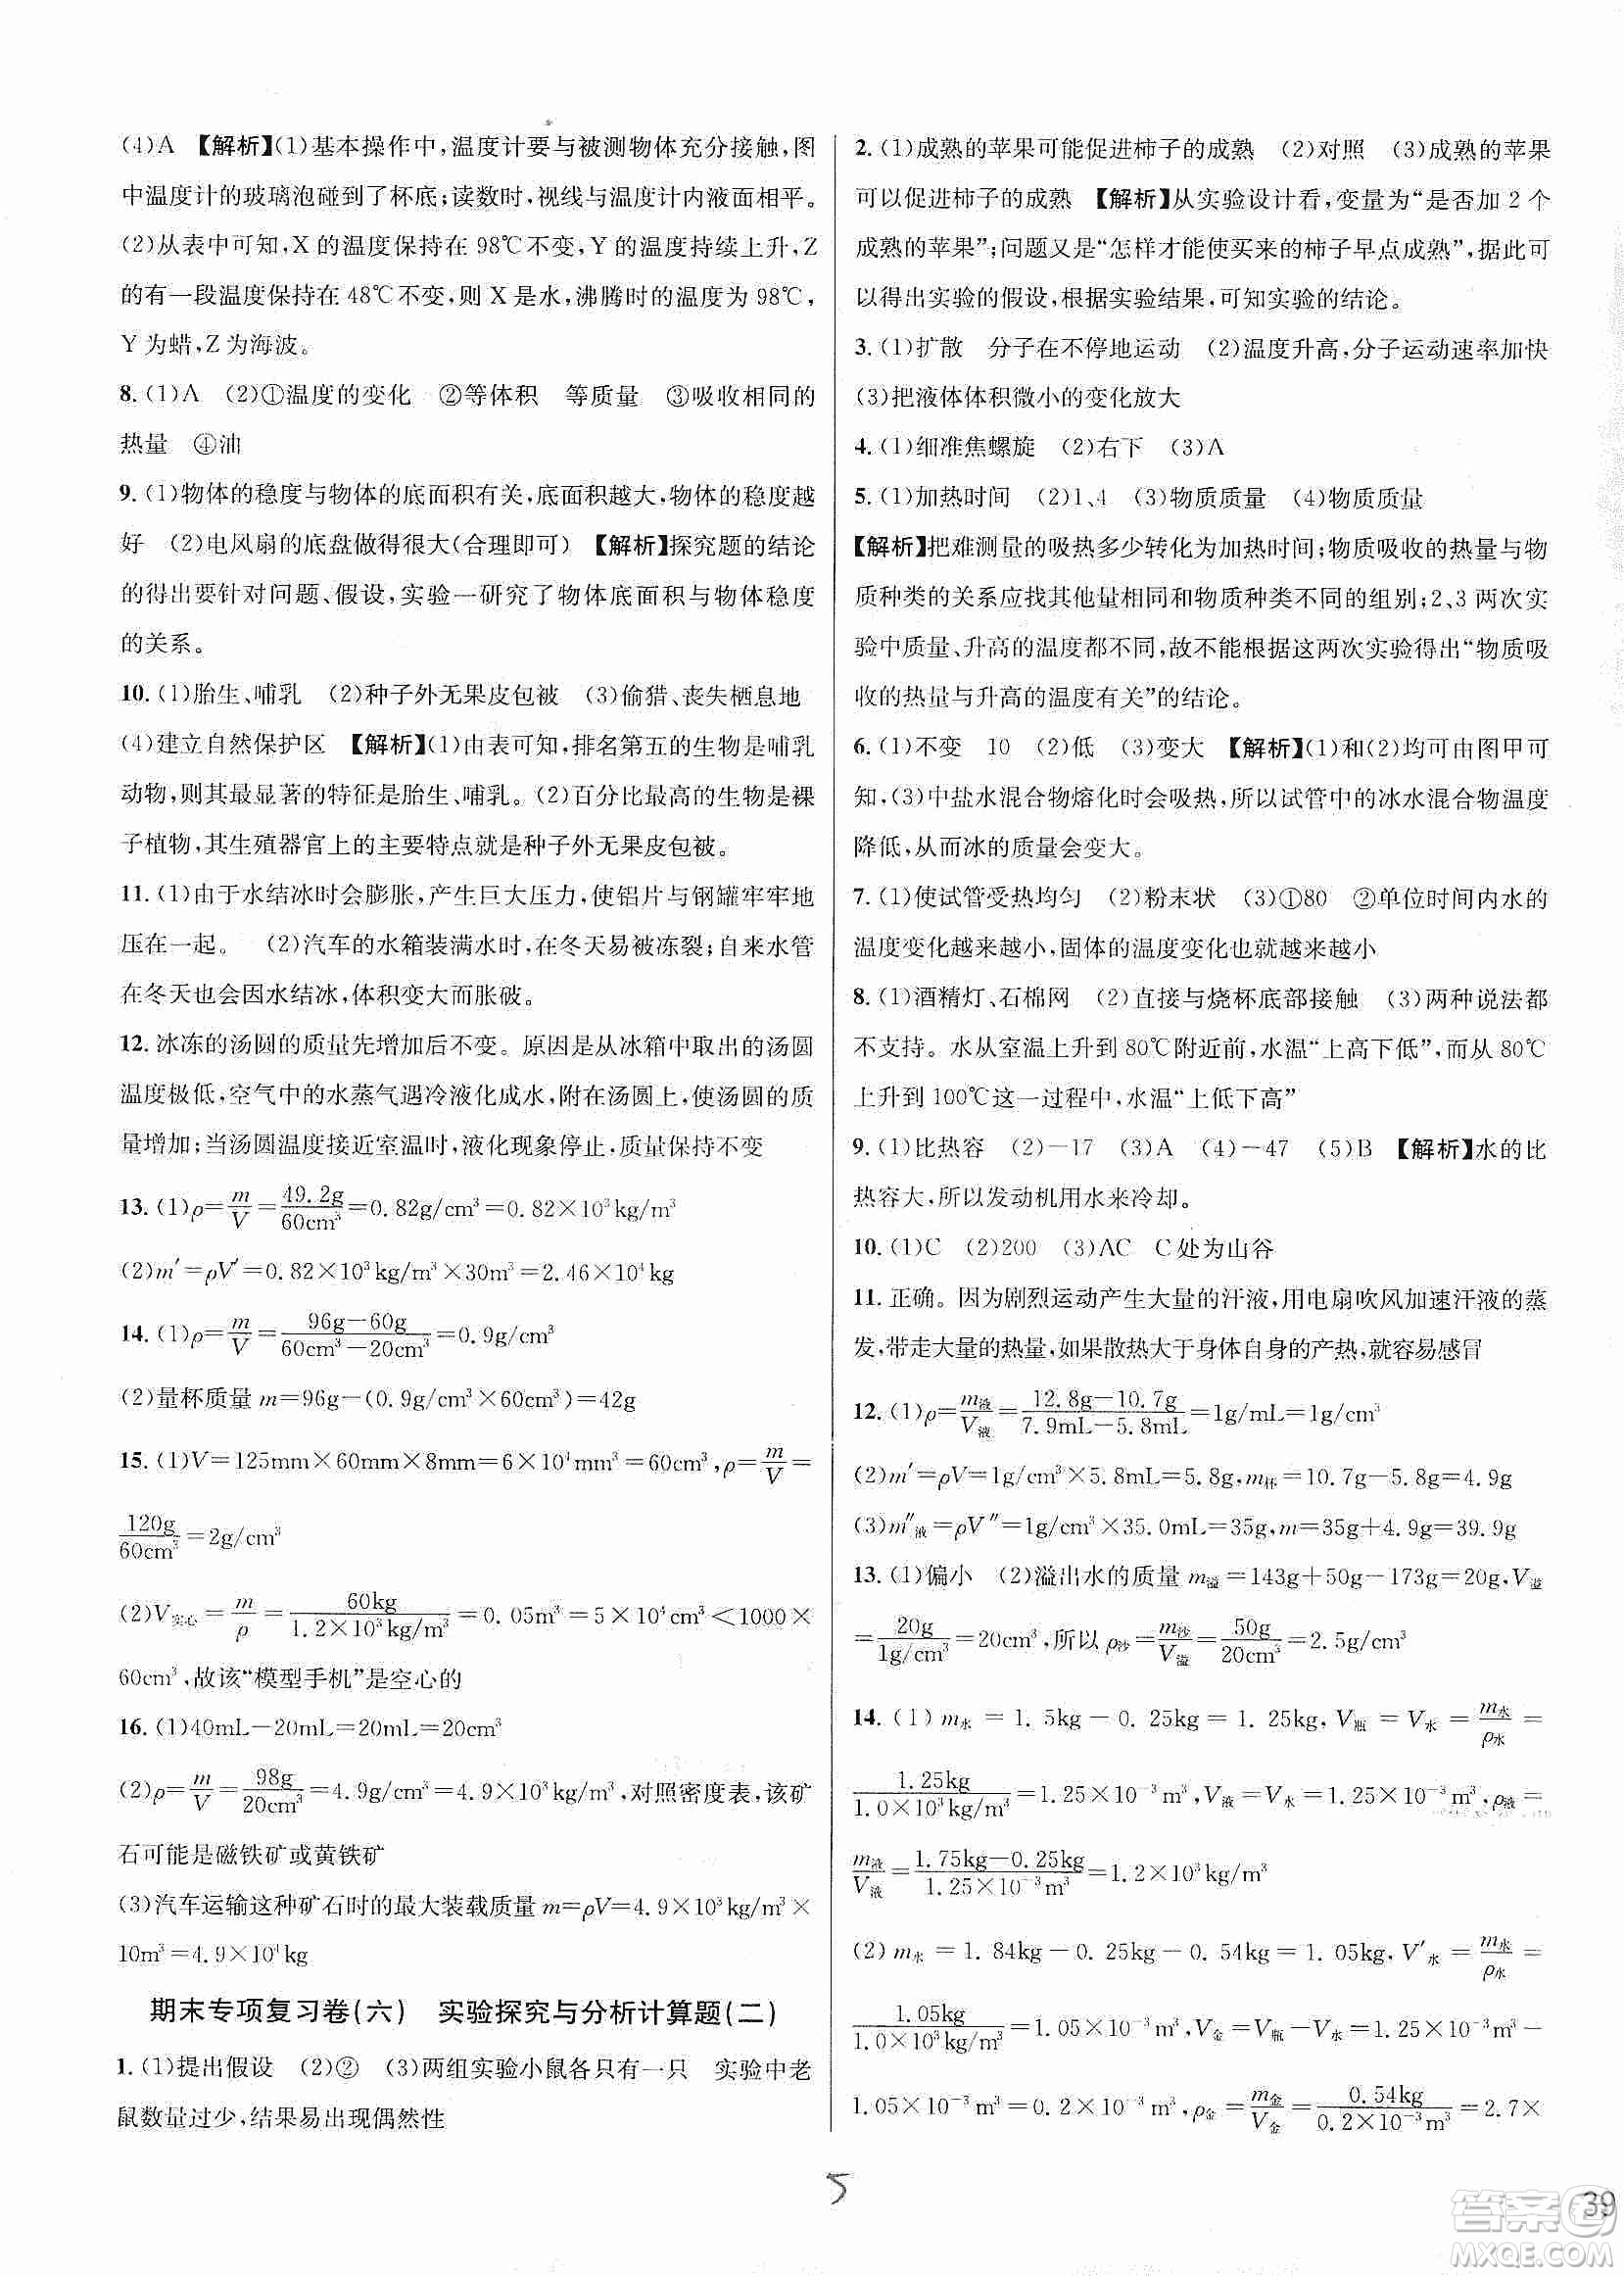 (4)A 【解析】(1)基本操作中,温度计要与被测物体充分接触,图
中温度计的玻璃泡碰到了杯底;读数时,视线与温度计内液面相平。
(2)从表中可知,X 的温度保持在 98℃不变,Y 的温度持续上升,Z
的有一段温度保持在 48℃不变,则 X 是水,沸腾时的温度为 98℃,
Y 为蜡,Z 为海波。
8. (1)A (2)①温度的变化 ②等体积 等质量 ③吸收相同的
热量 ④油
9. (1)物体的稳度与物体的底面积有关,底面积越大,物体的稳度越
好 (2)电风扇的底盘做得很大(合理即可) 【解析】探究题的结论
的得出要针对问题、假设,实验一研究了物体底面积与物体稳度
的关系。
10. (1)胎生、哺乳 (2)种子外无果皮包被 (3)偷猎、丧失栖息地
(4)建立自然保护区 【解析】(1)由表可知,排名第五的生物是哺乳
动物,则其最显著的特征是胎生、哺乳。(2)百分比最高的生物是裸
子植物,其生殖器官上的主要特点就是种子外无果皮包被。
11. (1)由于水结冰时会膨胀,产生巨大压力,使铝片与钢罐牢牢地
压在一起。 (2)汽车的水箱装满水时,在冬天易被冻裂;自来水管
在冬天也会因水结冰,体积变大而胀破。
12. 冰冻的汤圆的质量先增加后不变。原因是从冰箱中取出的汤圆
温度极低,空气中的水蒸气遇冷液化成水,附在汤圆上,使汤圆的质
量增加;当汤圆温度接近室温时,液化现象停止,质量保持不变
13. (1)ρ=m/V=49.2g/60cm³=0.82g/cm³=0.82×10³kg/m³
(2)m′=ρV′=0.82×10³kg/m³×30m³=2.46×10⁴kg
14. (1)ρ=m/V=(96g−60g)/(60cm³−20cm³)=0.9g/cm³
(2)量杯质量 m=96g−(0.9g/cm³×60cm³)=42g
15. (1)V=125mm×60mm×8mm=6×10⁴mm³=60cm³,ρ=m/V=
120g/60cm³=2g/cm³
(2)V实心=m/ρ=60kg/(1.2×10³kg/m³)=0.05m³=5×10⁴cm³<1000×
60cm³,故该“模型手机”是空心的
16. (1)40mL−20mL=20mL=20cm³
(2)ρ=m/V=98g/20cm³=4.9g/cm³=4.9×10³kg/m³,对照密度表,该矿
石可能是磁铁矿或黄铁矿
(3)汽车运输这种矿石时的最大装载质量 m=ρV=4.9×10³kg/m³×
10m³=4.9×10⁴kg
期末专项复习卷(六) 实验探究与分析计算题(二)
1. (1)提出假设 (2)② (3)两组实验小鼠各只有一只 实验中老
鼠数量过少,结果易出现偶然性
2. (1)成熟的苹果可能促进柿子的成熟 (2)对照 (3)成熟的苹果
可以促进柿子的成熟 【解析】从实验设计看,变量为“是否加 2 个
成熟的苹果”;问题又是“怎样才能使买来的柿子早点成熟”,据此可
以得出实验的假设,根据实验结果,可知实验的结论。
3. (1)扩散 分子在不停地运动 (2)温度升高,分子运动速率加快
(3)把液体体积微小的变化放大
4. (1)细准焦螺旋 (2)右下 (3)A
5. (1)加热时间 (2)1、4 (3)物质质量 (4)物质质量
【解析】把难测量的吸热多少转化为加热时间;物质吸收的热量与物
质种类的关系应找其他量相同和物质种类不同的组别;2、3 两次实
验中质量、升高的温度都不同,故不能根据这两次实验得出“物质吸
收的热量与升高的温度有关”的结论。
6. (1)不变 10 (2)低 (3)变大 【解析】(1)和(2)均可由图甲可
知,(3)中盐水混合物熔化时会吸热,所以试管中的冰水混合物温度
降低,从而冰的质量会变大。
7. (1)使试管受热均匀 (2)粉末状 (3)①80 ②单位时间内水的
温度变化越来越小,固体的温度变化也就越来越小
8. (1)酒精灯、石棉网 (2)直接与烧杯底部接触 (3)两种说法都
不支持。水从室温上升到 80℃附近前,水温“上高下低”,而从 80℃
上升到 100℃这一过程中,水温“上低下高”
9. (1)比热容 (2)−17 (3)A (4)−47 (5)B 【解析】水的比
热容大,所以发动机用水来冷却。
10. (1)C (2)200 (3)AC C 处为山谷
11. 正确。因为剧烈运动产生大量的汗液,用电扇吹风加速汗液的蒸
发,带走大量的热量,如果散热大于身体自身的产热,就容易感冒
12. (1)ρ=m液/V液=(12.8g−10.7g)/(7.9mL−5.8mL)=1g/mL=1g/cm³
(2)m′=ρV=1g/cm³×5.8mL=5.8g,m杯=10.7g−5.8g=4.9g
(3)m″液=ρV″=1g/cm³×35.0mL=35g,m=35g+4.9g=39.9g
13. (1)偏小 (2)溢出水的质量 m溢=143g+50g−173g=20g,V溢
=20g/(1g/cm³)=20cm³,所以 ρ沙=m沙/V溢=50g/20cm³=2.5g/cm³
14. (1)m水=1.5kg−0.25kg=1.25kg,V瓶=V水=m水/ρ水=
1.25kg/(1.0×10³kg/m³)=1.25×10⁻³m³,V液=V水=1.25×10⁻³m³,ρ液=
m液/V液=(1.75kg−0.25kg)/(1.25×10⁻³m³)=1.2×10³kg/m³
(2)m水=1.84kg−0.25kg−0.54kg=1.05kg,V′水=m水/ρ水=
1.05kg/(1.0×10³kg/m³)=1.05×10⁻³m³,V金=V瓶−V水=1.25×10⁻³m³−
1.05×10⁻³m³=0.2×10⁻³m³,ρ金=m金/V金=0.54kg/(0.2×10⁻³m³)=2.7×
5
39
答案圈
MXQE.COM